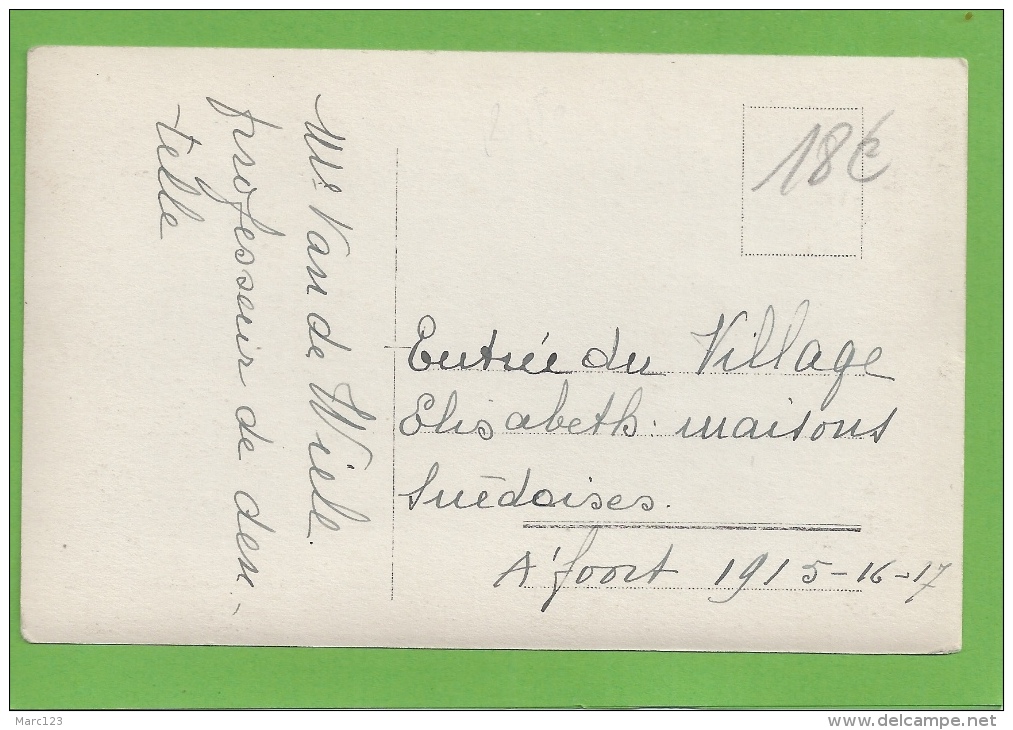 Mr. Van de Wiele.
professeur de den-
telle
18€
Entrée du Village
Elisabeth: maisons
Suédoises.
A'foort 1915-16-17
Marc123
www.delcampe.net